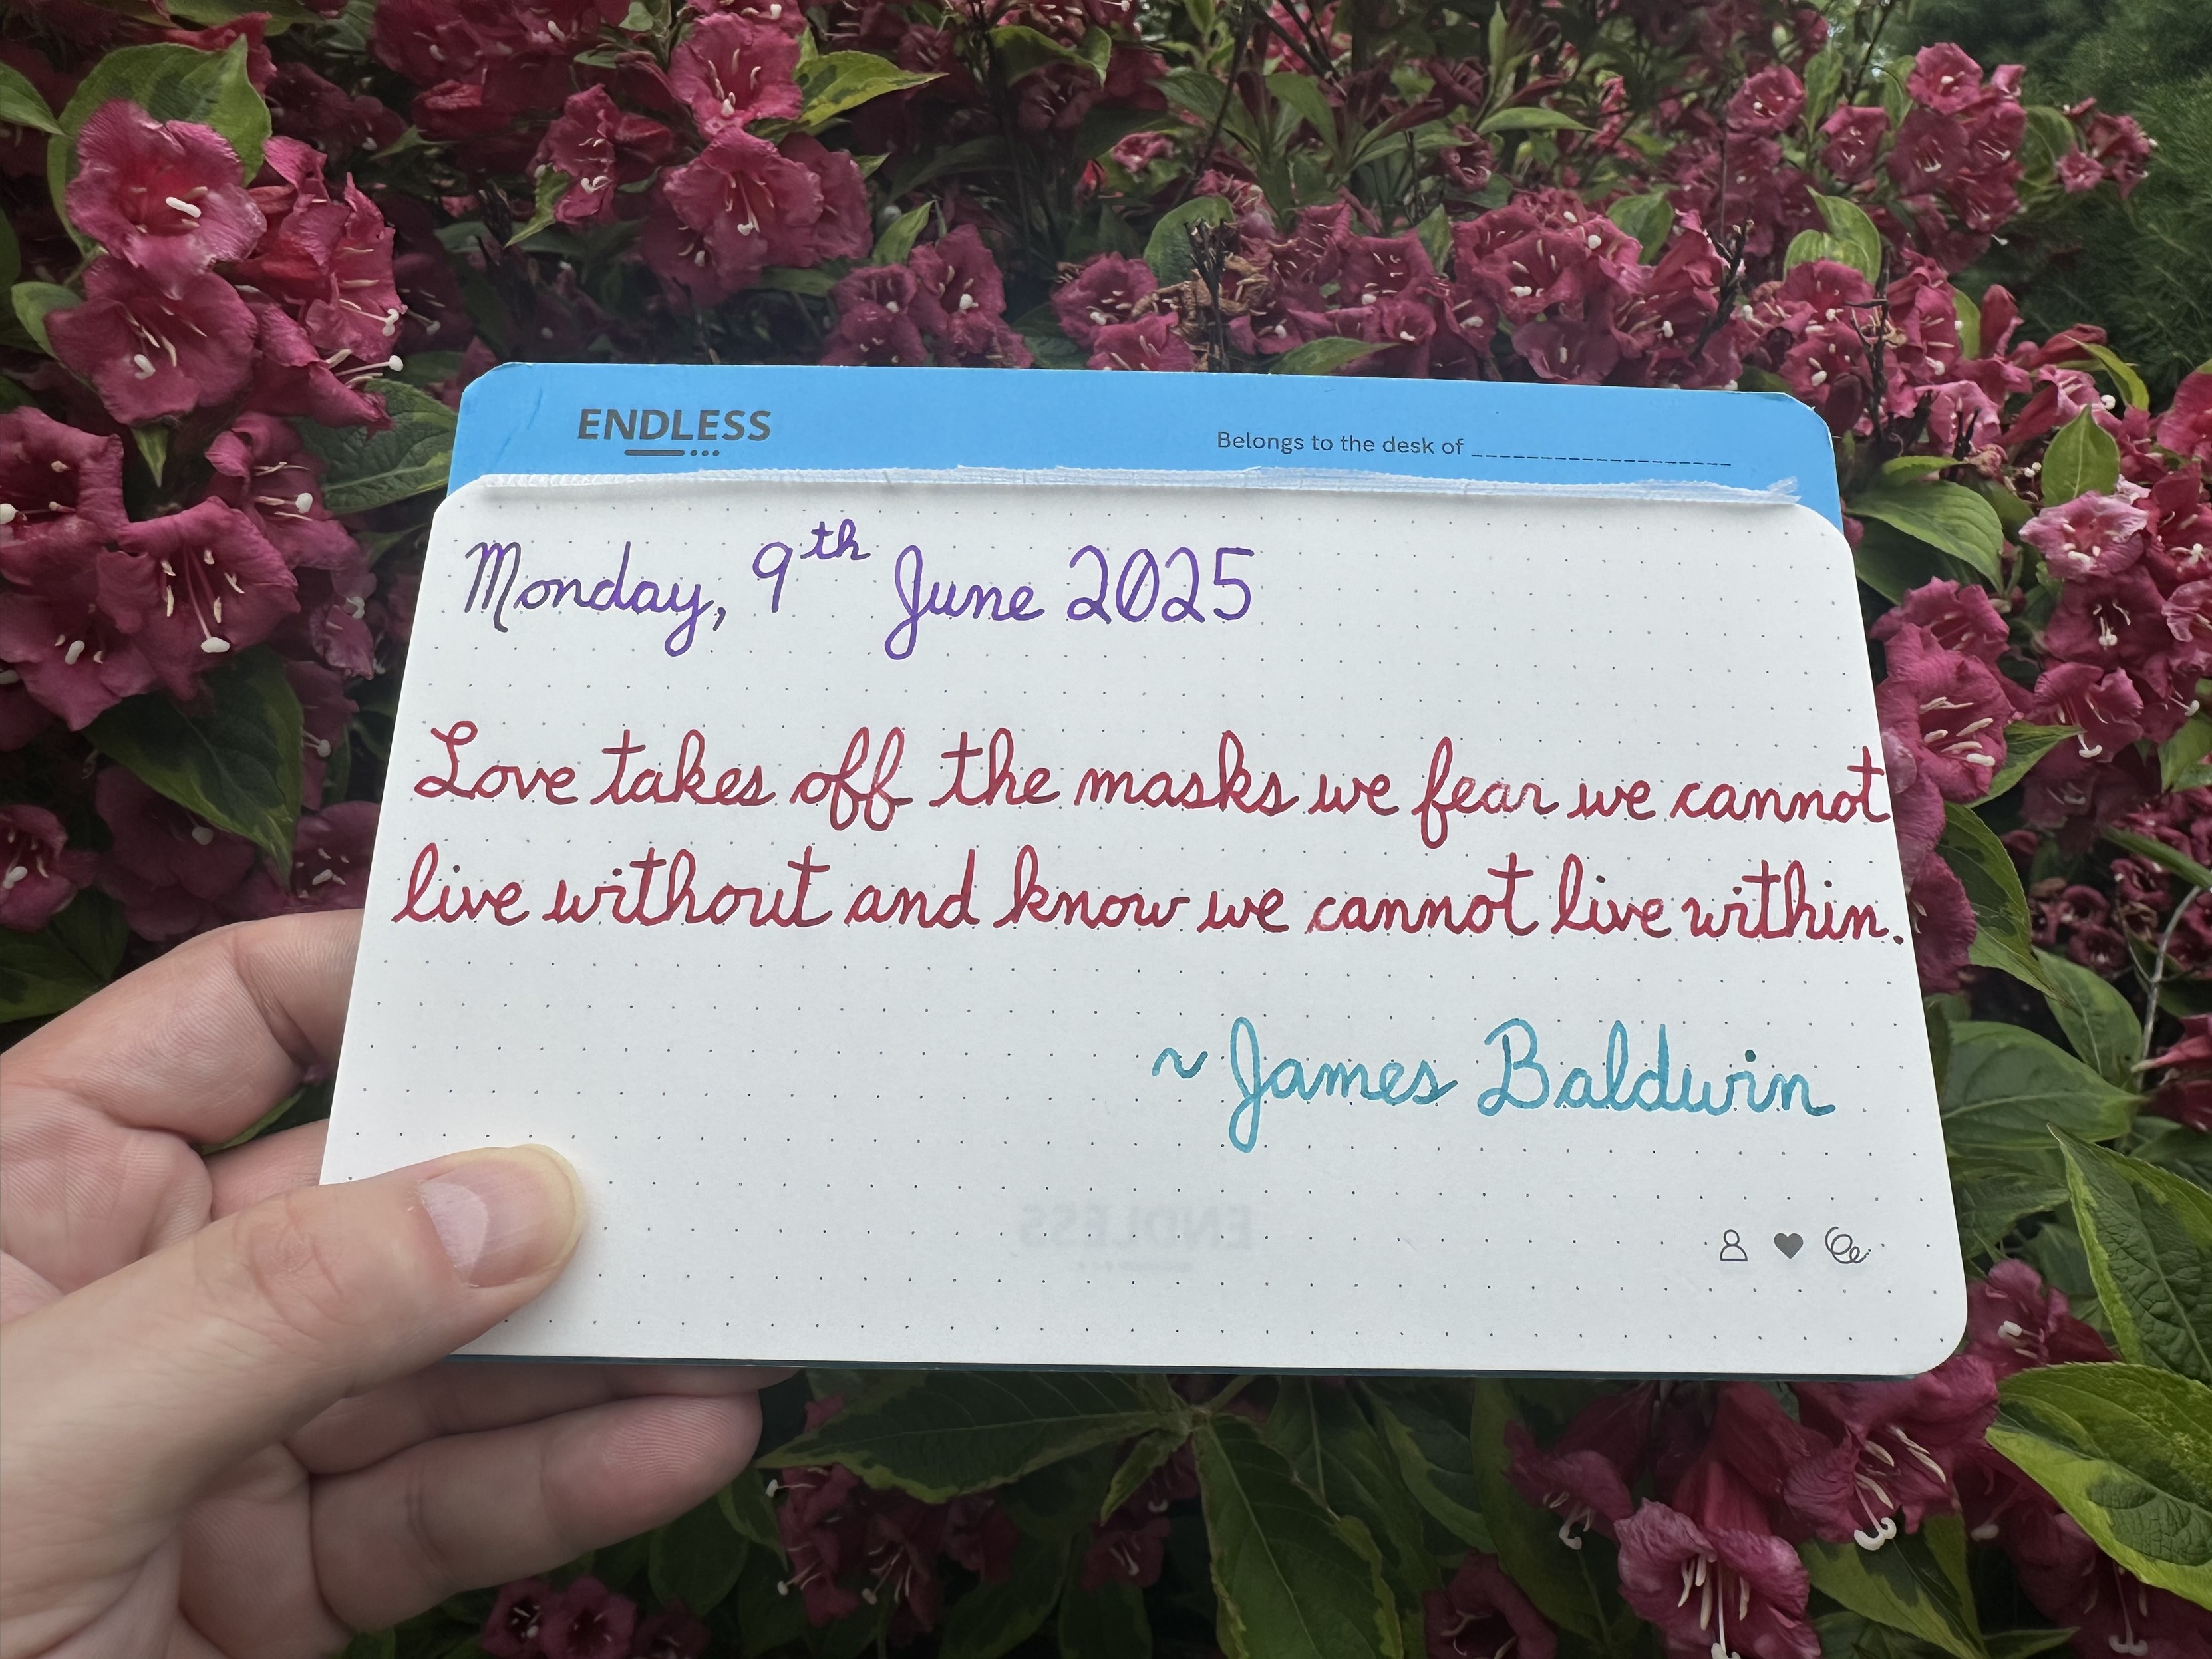 ENDLESS
Belongs to the desk of
Monday, 9th June 2025
Love takes off the masks we fear we cannot
live without and know we cannot live within.
~ James Baldwin
ENDLESS